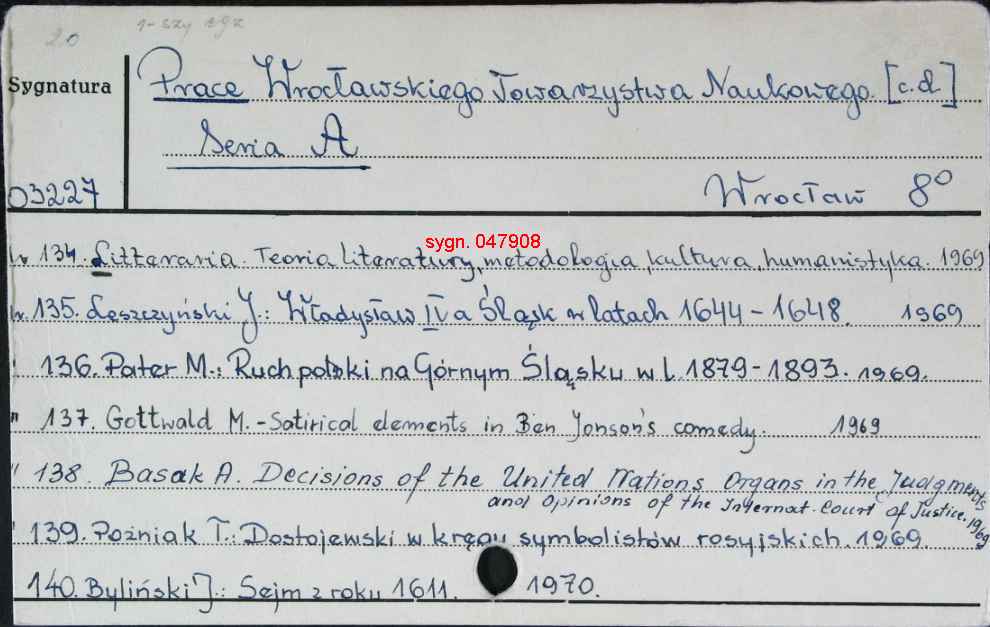 20 1-szy egz
Sygnatura
Prace Wrocławskiego Towarzystwa Naukowego. [c.d]
Seria A
03227
Wrocław 8°
sygn. 047908
134. Litteraria. Teoria literatury, metodologia, kultura, humanistyka. 1969
135. Leszczyński J.: Władysław IV a Śląsk w latach 1644-1648. 1969
136. Pater M.: Ruch polski na Górnym Śląsku w l. 1879-1893. 1969.
" 137. Gottwald M. - Satirical elements in Ben Jonson's comedy. 1969
" 138. Basak A. Decisions of the United Nations Organs in the Judgments
and Opinions of the Internat. Court of Justice. 1969
" 139. Poźniak T.: Dostojewski w kręgu symbolistów rosyjskich. 1969.
140. Byliński J.: Sejm z roku 1611. 1970.